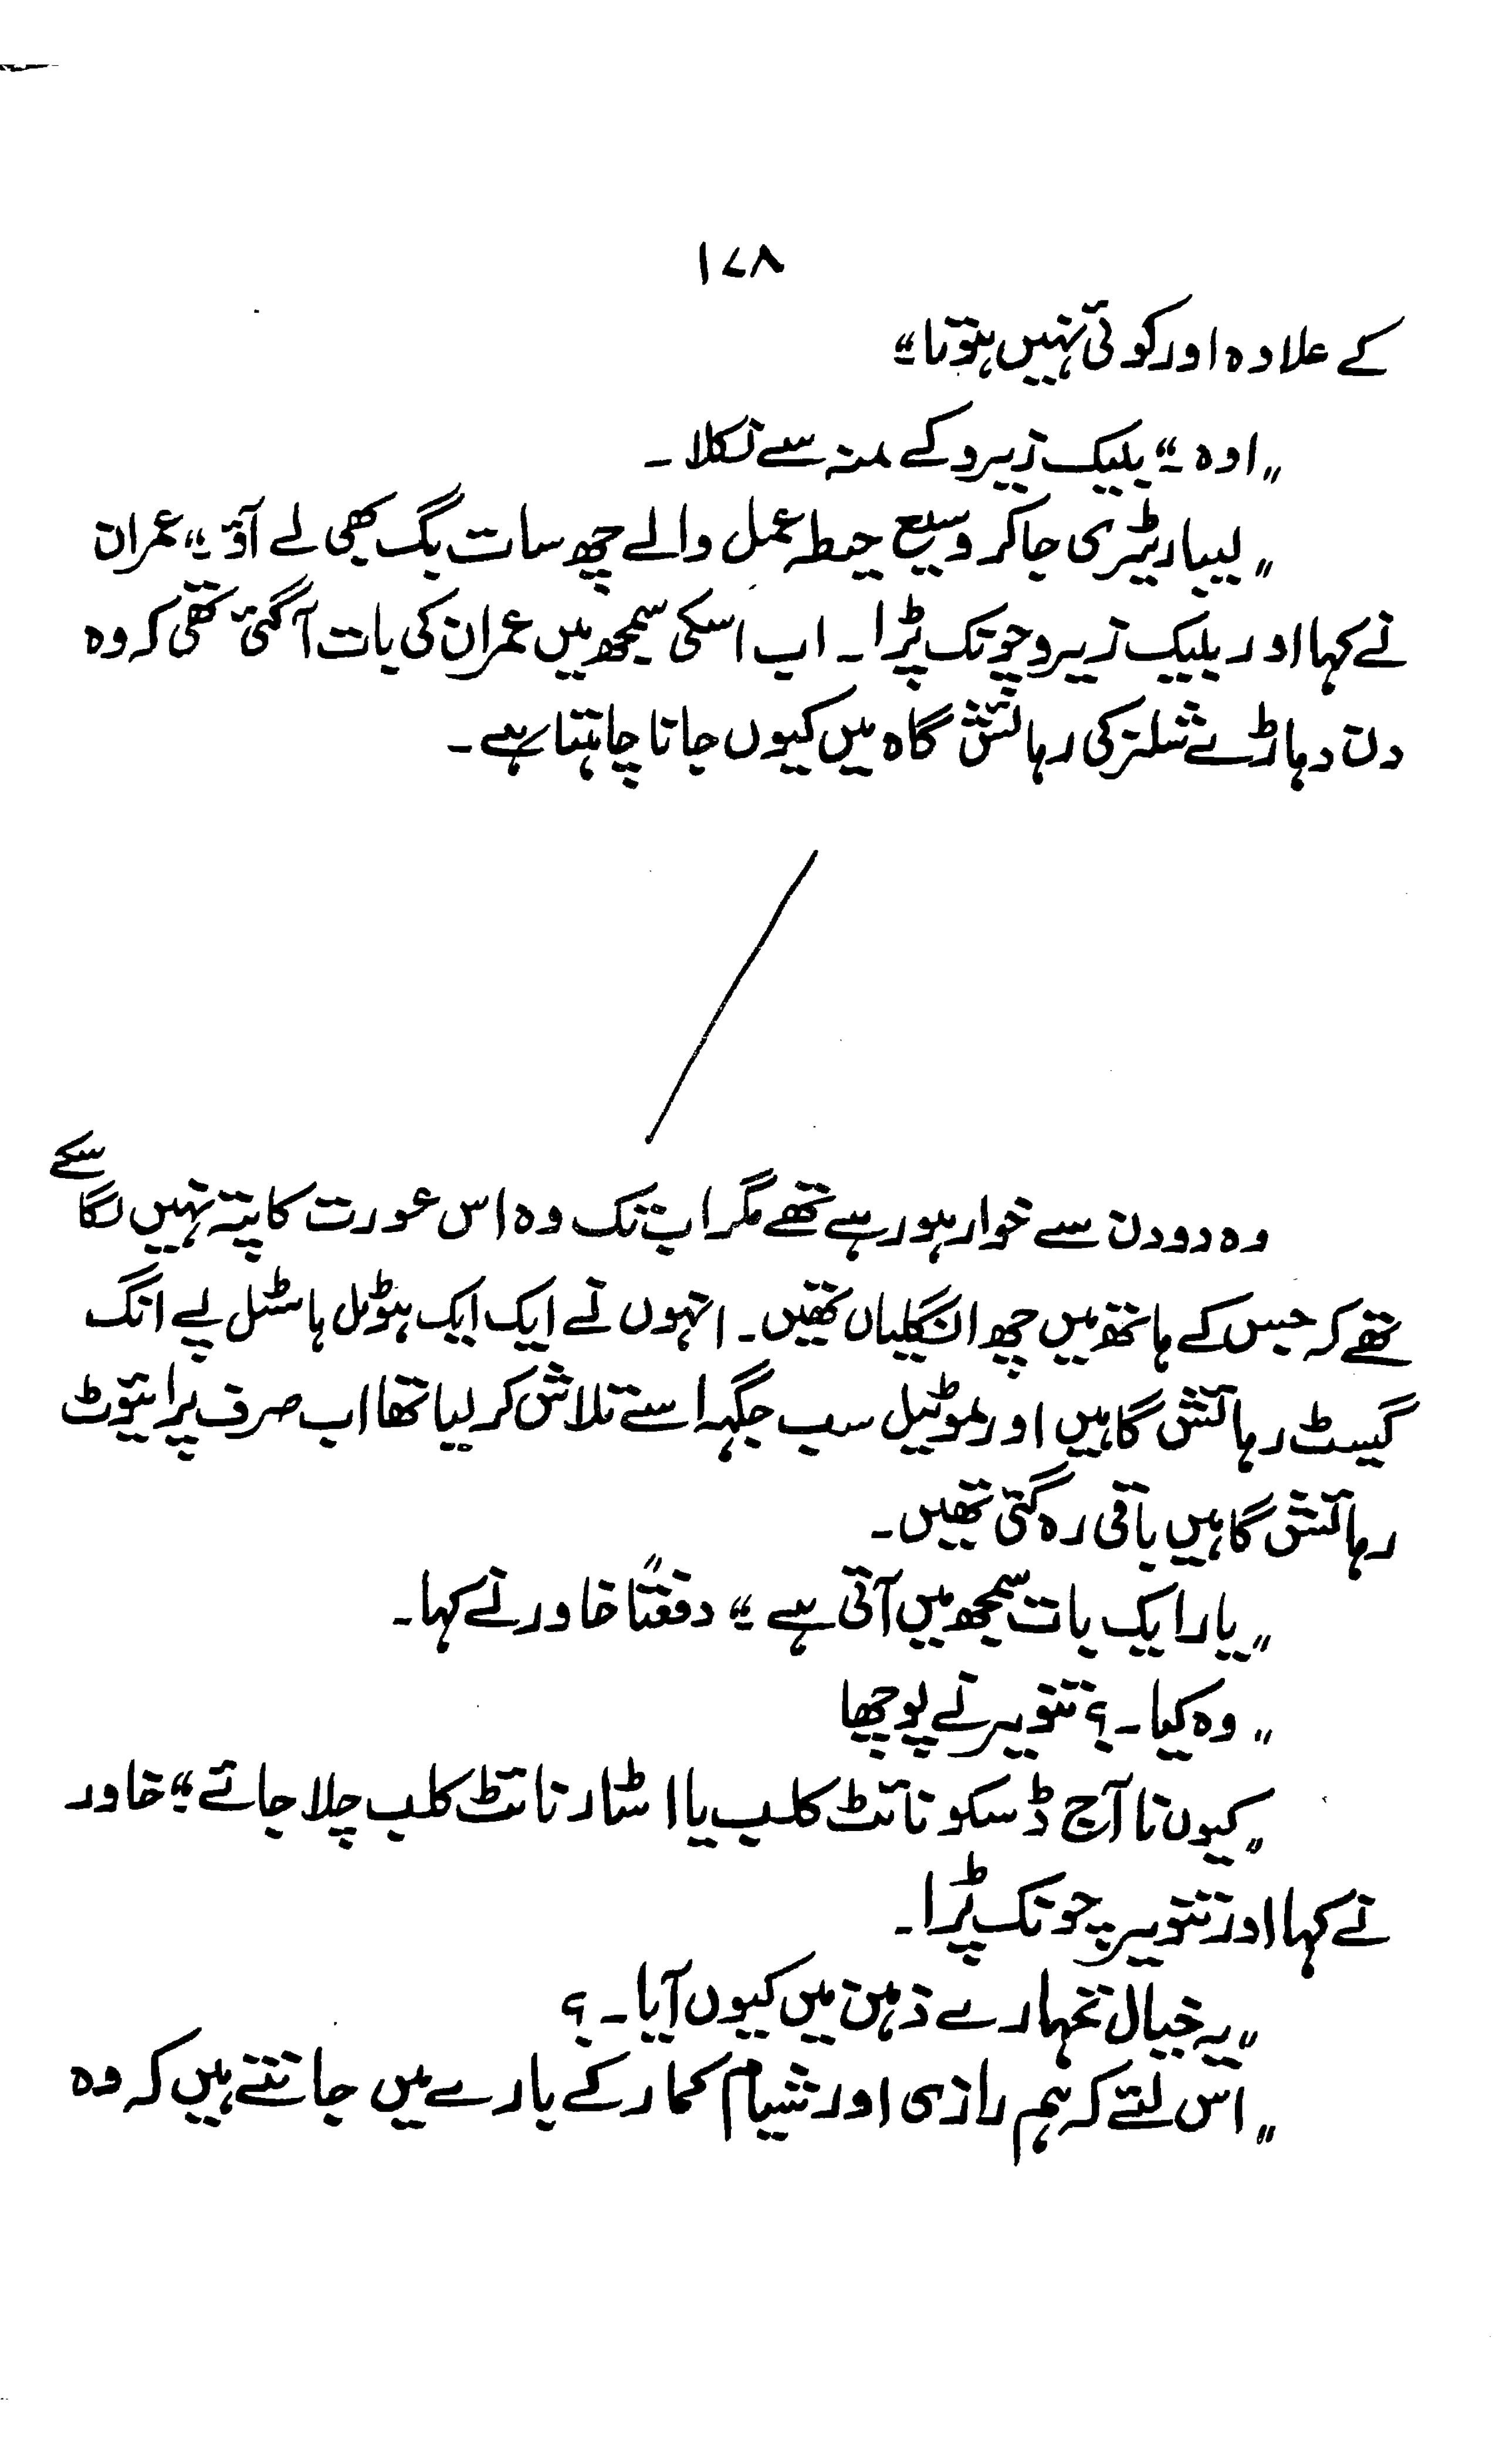 ۱۷۸
کے علاوہ اور کوئی نہیں ہوتا“
”اوہ“ بلیک زیرو کے منہ سے نکلا۔
”لیبارٹیری جا کر وسیع حیطہ عمل والے چھ سات بگ بھی لے آؤ“ عمران
نے کہا اور بلیک زیرو چونک پڑا۔ اب اسکی سمجھ میں عمران کی بات آگئی تھی کہ وہ
دن دہاڑے شلز کی رہائش گاہ میں کیوں جانا چاہتا ہے۔
وہ دو دن سے خوار ہو رہے تھے مگر اب تک وہ اس عورت کا پتہ نہیں لگا سکے
تھے کہ جس کے ہاتھ میں چھ انگلیاں تھیں۔ انہوں نے ایک ایک ہوٹل ہاسٹل پے انگ
گیسٹ رہائش گاہیں اور موٹیل سب جگہ اسے تلاش کر لیا تھا اب صرف پرائیوٹ
رہائش گاہیں باقی رہ گئی تھیں۔
”یار ایک بات سمجھ میں آتی ہے“ دفعتاً خاور نے کہا۔
”وہ کیا۔؟ تنویر نے پوچھا
”کیوں نا آج ڈسکو نائٹ کلب یا اسٹار نائٹ کلب چلا جائے“ خاور
نے کہا اور تنویر چونک پڑا۔
”یہ خیال تمہارے ذہن میں کیوں آیا۔؟
”اس لئے کہ ہم رازی اور شیام کمار کے بارے میں جانتے ہیں کہ وہ